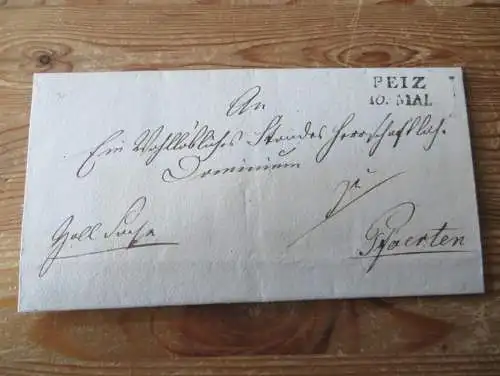 PEIZ
10. MAI.
An
Ein Wohllöbliches Standes Herrschaftlich.
Dominium
zu
Pfoerten